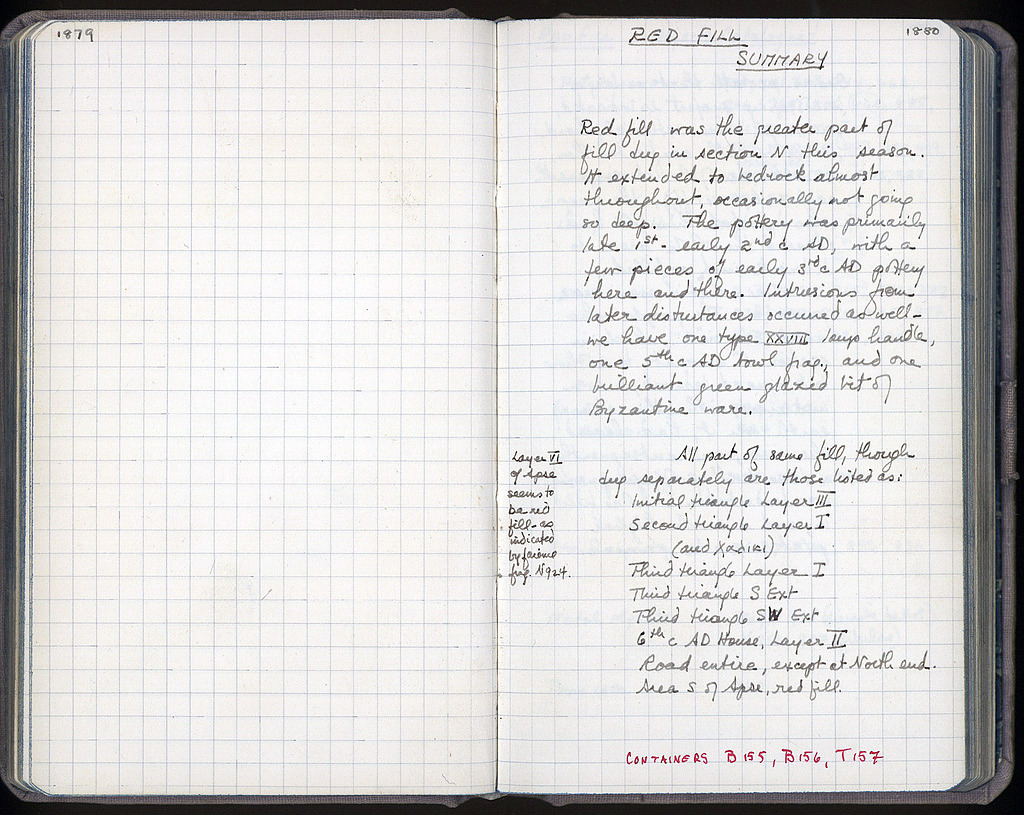 1879
1880
RED FILL
SUMMARY
Red fill was the greater part of
fill dug in section N this season.
It extended to bedrock almost
throughout, occasionally not going
so deep. The pottery was primarily
late 1st - early 2nd c AD, with a
few pieces of early 3rd c AD pottery
here and there. Intrusions from
later disturbances occurred as well -
we have one type XXVIII lamp handle,
one 5th c AD bowl frag., and one
brilliant green glazed bit of
Byzantine ware.
Layer VI
of Apse
seems to
be red
fill - as
indicated
by faience
frag. N924.
All part of same fill, though
dug separately are those listed as:
Initial triangle Layer III
Second triangle Layer I
(and Χαλίκι)
Third triangle Layer I
Third triangle S Ext
Third triangle SW Ext
6th c AD House, Layer II
Road entire, except at North end.
Area S of Apse, red fill.
CONTAINERS B155, B156, T157